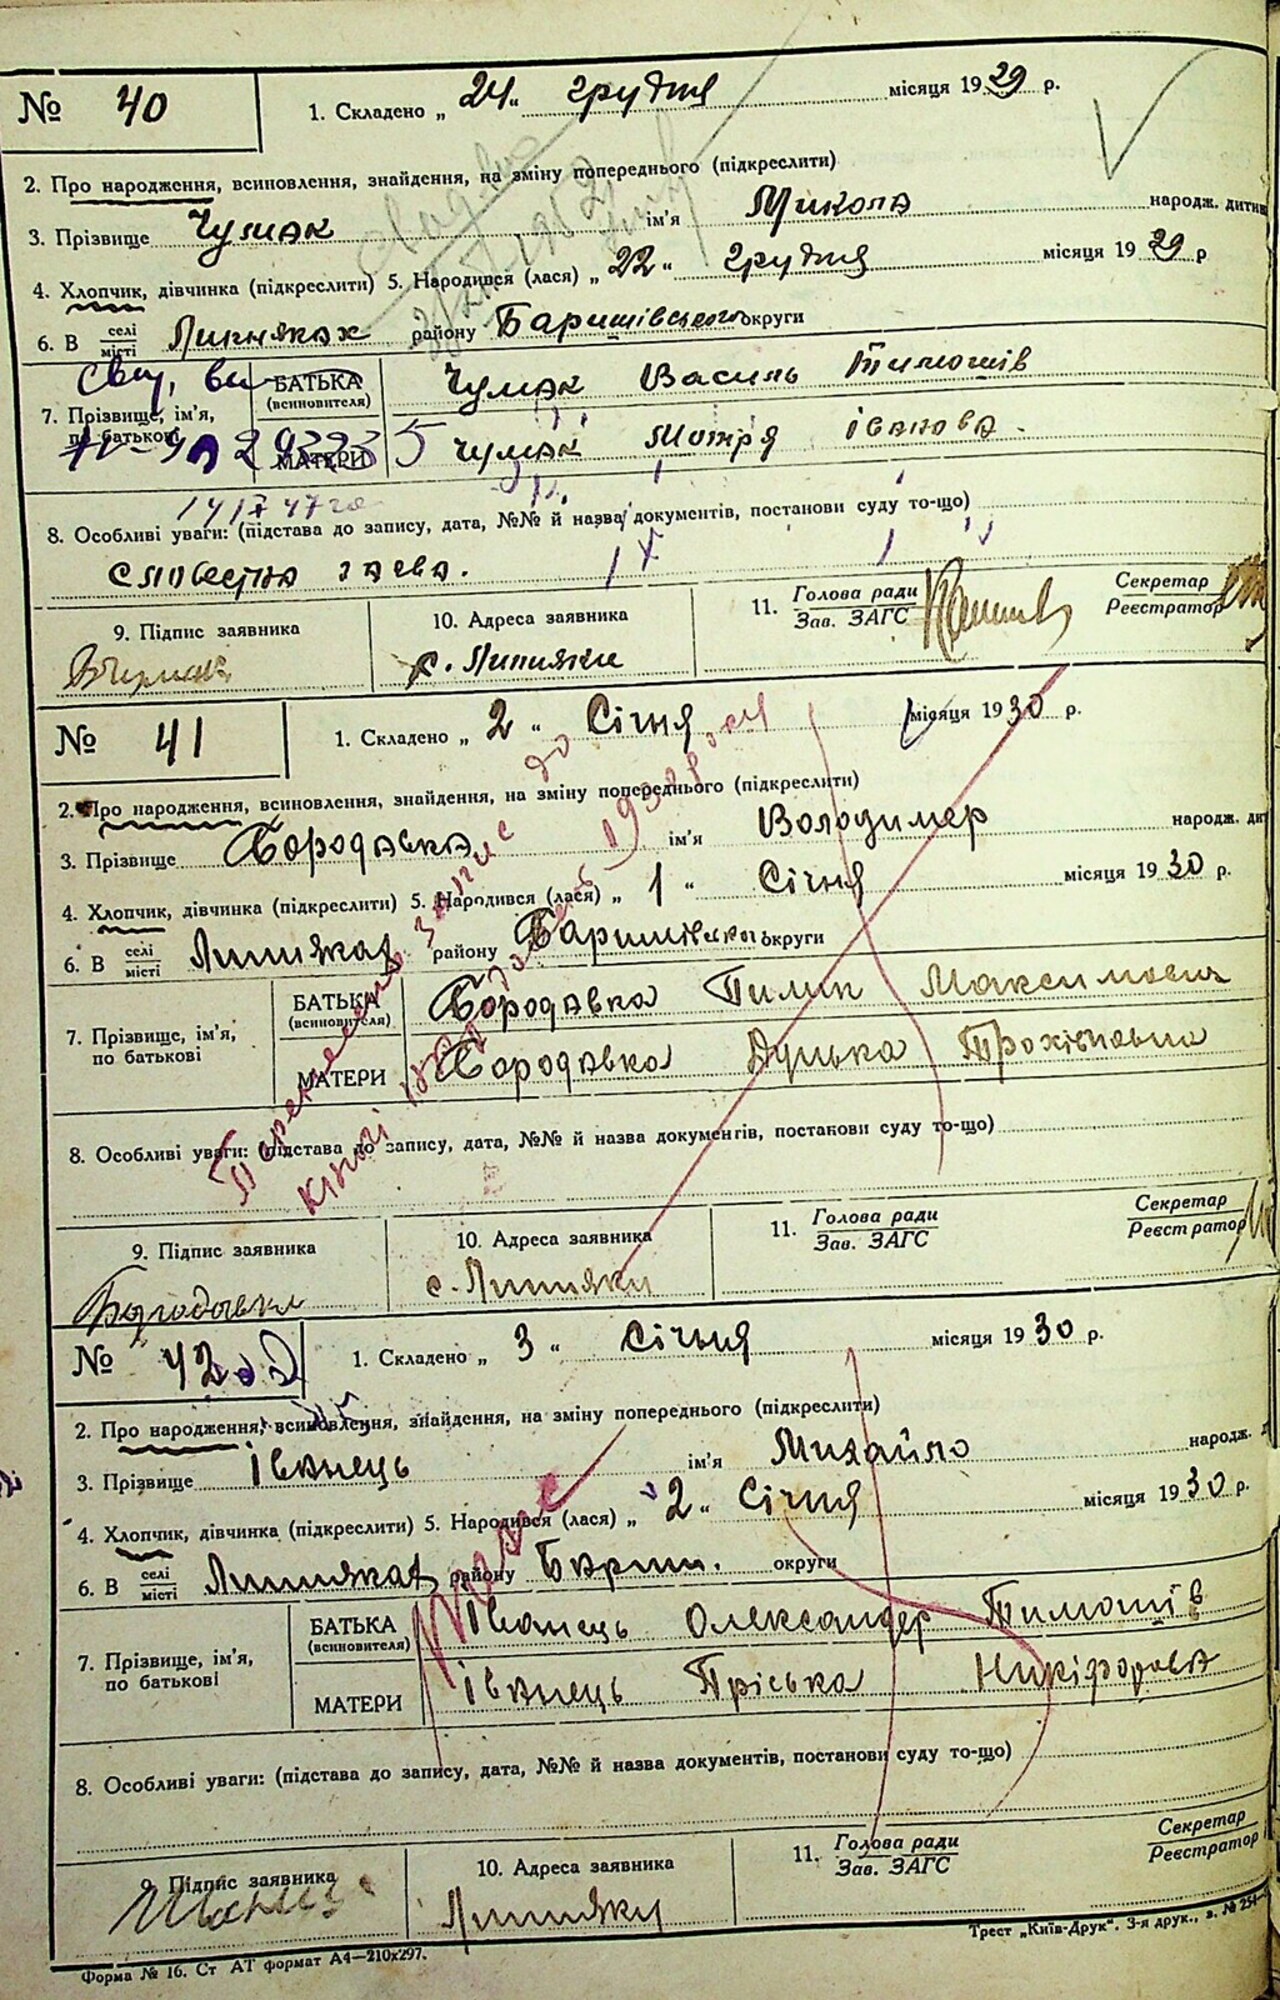 № 40
1. Складено „ 24 “ грудня місяця 1929 р.
2. Про народження, всиновлення, знайдення, на зміну попереднього (підкреслити)
3. Прізвище Чумак ім'я Микола народж. дитин
4. Хлопчик, дівчинка (підкреслити) 5. Народився (лася) „ 22 “ грудня місяця 1929 р
6. В селі місті Липняках району Баришівського округи
7. Прізвище, ім'я, по батькові
БАТЬКА (всиновителя) Чумак Василь Тимошів
МАТЕРИ Чумак Мотря Іванова
8. Особливі уваги: (підстава до запису, дата, №№ й назва документів, постанови суду то-що)
словесна заява.
9. Підпис заявника
10. Адреса заявника
с. Липняки
11. Голова ради Зав. ЗАГС
Секретар Реєстратор
№ 41
1. Складено „ 2 “ Січня місяця 1930 р.
2. Про народження, всиновлення, знайдення, на зміну попереднього (підкреслити)
3. Прізвище Бородавка ім'я Володимер народж. дит
4. Хлопчик, дівчинка (підкреслити) 5. Народився (лася) „ 1 “ Січня місяця 1930 р.
6. В селі місті Липняках району Баришівськ округи
7. Прізвище, ім'я, по батькові
БАТЬКА (всиновителя) Бородавка Пилип Максимович
МАТЕРИ Бородавка Дунька Трохимівна
8. Особливі уваги: (підстава до запису, дата, №№ й назва документів, постанови суду то-що)
Перенесено запис до
книзі
9. Підпис заявника
Бородавка
10. Адреса заявника
с. Липняки
11. Голова ради Зав. ЗАГС
Секретар Реєстратор
№ 42
1. Складено „ 3 “ Січня місяця 1930 р.
2. Про народження, всиновлення, знайдення, на зміну попереднього (підкреслити)
3. Прізвище Іванець ім'я Михайло народж.
4. Хлопчик, дівчинка (підкреслити) 5. Народився (лася) „ 2 “ Січня місяця 1930 р.
6. В селі місті Липняках району Бариш. округи
7. Прізвище, ім'я, по батькові
БАТЬКА (всиновителя) Іванець Олександер Тимошів
МАТЕРИ Іванець Пріська Никіфорова
8. Особливі уваги: (підстава до запису, дата, №№ й назва документів, постанови суду то-що)
9. Підпис заявника
10. Адреса заявника
Липняки
11. Голова ради Зав. ЗАГС
Секретар Реєстратор
Форма № 16. Ст АТ формат А4—210х297.
Трест „Київ-Друк“. 3-я друк., з. № 254